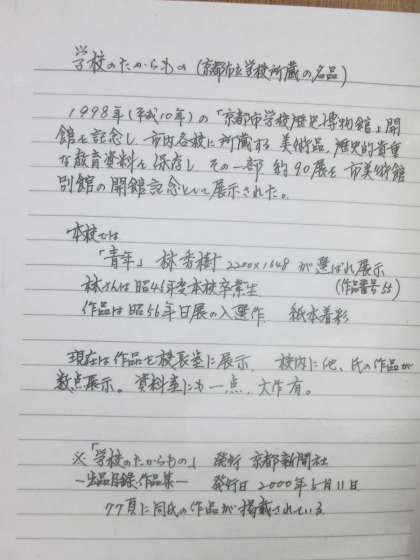 学校のたからもの (京都市立学校所蔵の名品)
1998年(平成10年)の「京都市学校歴史博物館」開
館を記念し、市内各校に所蔵する美術品、歴史的貴重
な教育資料を保存し、その一部 約90展を 市美術館
別館の開館記念として展示された。
本校では
「青年」 林秀樹 2200×1648 が選ばれ展示
林さんは昭46年度本校卒業生 (作品番号55)
作品は昭56年日展の入選作、紙本着彩
現在は作品を校長室に展示、校内に他、氏の作品が
数点展示。資料室にも一点、大作有。
※「学校のたからもの」 発行 京都新聞社
－出品目録、作品集－ 発行日 2000年5月11日
77頁に同氏の作品が掲載されている